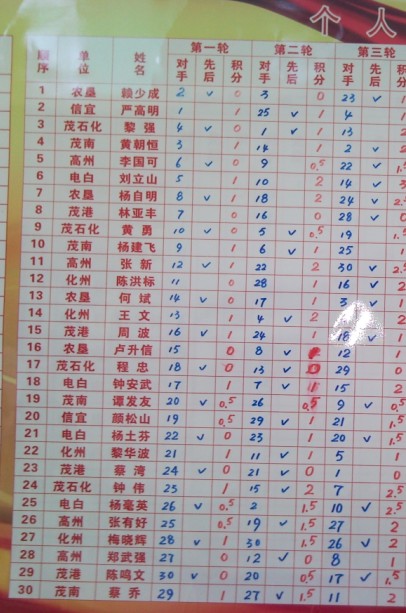 个 人
顺序 单位 姓名 第一轮 第二轮 第三轮
对手 先后 积分 对手 先后 积分 对手 先后 积分
1 农垦 赖少成 2 ✓ 0 3 0 23 ✓ 1
2 信宜 严高明 1 1 25 ✓ 1 4 1
3 茂石化 黎强 4 ✓ 0 1 ✓ 1 13 2
4 茂南 黄朝恒 3 1 14 1 2 ✓ 2
5 高州 李国可 6 ✓ 0 9 0.5 22 ✓ 1.5
6 电白 刘立山 5 1 10 2 14 ✓
7 农垦 杨自明 8 ✓ 1 18 2 24 ✓ 2.5
8 茂港 林亚丰 7 0 16 0 28 ✓ 0
9 茂石化 黄勇 10 ✓ 0 5 ✓ 0.5 19 1.5
10 茂南 杨建飞 9 1 6 ✓ 1 25 1
11 高州 张新 12 ✓ 1 22 2 30 ✓ 2.5
12 化州 陈洪标 11 0 28 1 16 ✓ 2
13 农垦 何斌 14 ✓ 0 17 1 3 ✓ 1
14 化州 王文 13 1 4 ✓ 2
15 茂港 周波 16 ✓ 1 24 1 18 ✓ 1
16 农垦 卢升信 15 0 8 ✓ 12 1
17 茂石化 程忠 18 ✓ 0 13 ✓ 0 29 0
18 电白 钟安武 17 1 7 ✓ 1 15 2
19 茂南 谭发友 20 ✓ 0.5 26 0.5 9 ✓ 0.5
20 信宜 颜松山 19 0.5 29 ✓ 1 21 1.5
21 电白 杨土芬 22 ✓ 0 23 1 20 ✓ 1.5
22 化州 黎华波 21 1 11 ✓ 1 5 1
23 茂港 蔡湾 24 ✓ 0 21 ✓ 0 1 0
24 茂石化 钟伟 23 1 15 ✓ 2 7 2.5
25 电白 杨毫英 26 ✓ 0.5 2 1.5 10 ✓ 2.5
26 高州 张有好 25 0.5 19 ✓ 1.5 27 2
27 化州 梅晓辉 28 ✓ 1 30 1.5 26 ✓ 2
28 高州 郑武强 27 0 12 ✓ 0 8 1
29 茂港 陈鸣文 30 ✓ 0 20 0.5 17 ✓ 1.5
30 茂南 蔡乔 29 1 27 ✓ 1.5 11 2